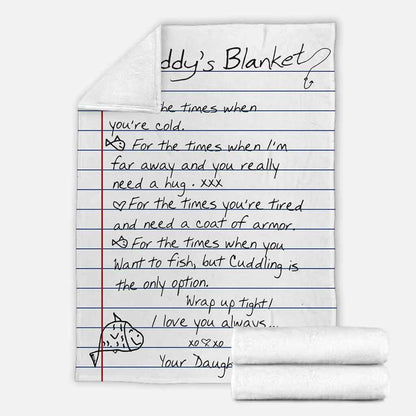 ddy's Blanket
the times when
you're cold.
For the times when I'm
far away and you really
need a hug. xxx
♡ For the times you're tired
and need a coat of armor.
For the times when you
Want to fish, but Cuddling is
the only option.
Wrap up tight!
I love you always...
xo♡xo
Your Daugh